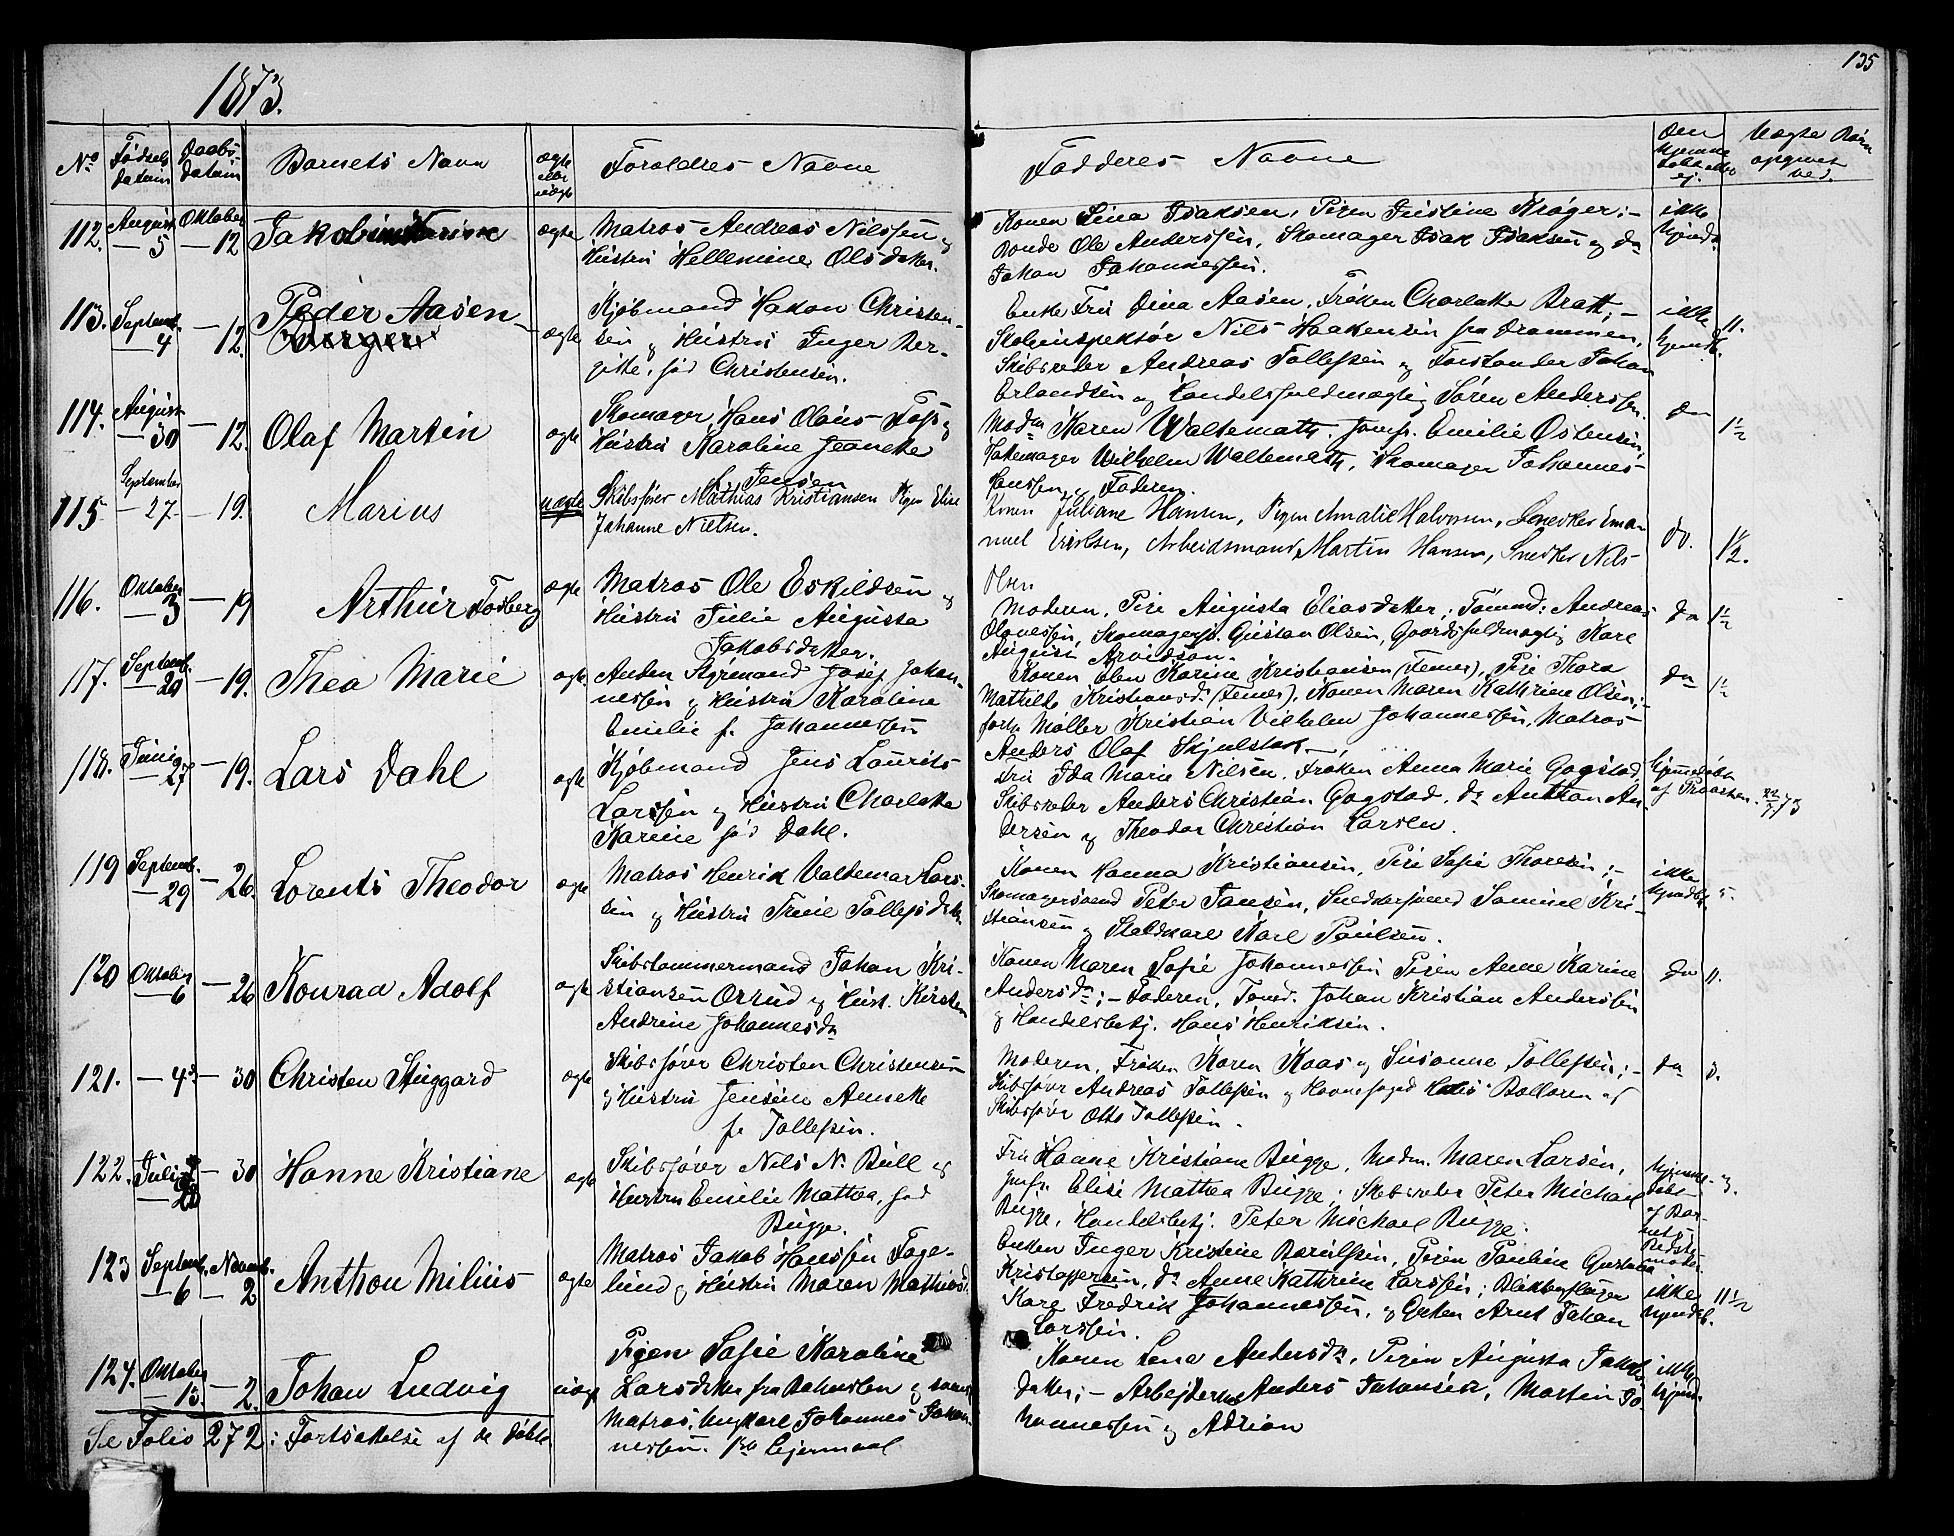 1873.
135
No
Fødsels datum
Daabs datum
Barnets Navn
ægte eller uægte
Foreldres Navne
Fadderes Navne
om hjemme døbt eller ej.
Uægte Børn opgivet ved.
112. August 5 Oktober 12 Jakobine Karine ægte
Matros Andreas Nilssen og
Hustru Hellemine Olsdatter.
Konen Lina Isaksen, Pigen Justine Krøger; –
Bonde Ole Anderssen, Skomager Isak Isaksen og do
Johan Johannessen.
ikke hjemdøbt
113. Septemb. 4 – 12. Peder Aasen Berger ægte
Kjøbmand Hakon Christen-
sen og Hustru Inger Ber-
gitte, fød Christensen.
Enke Fru Dina Aasen, Frøken Charlotte Bratt; –
Skoleinspektør Nils Haakensen fra Drammen,
Skibsreder Andreas Tollefsen og Forstander Johan
Erlandsen og Handelsfuldmægtig Søren Anderssen.
ikke hjemdb. 11.
114. August 30 – 12. Olaf Martin ægte
Skomager Hans Olaus Foss og
Hustru Karoline Jeanette
f. Jensen
Madm Karen Waltemath. Jomfr. Emilie Ostensen,
Hattemager Wilhelm Waltemath, Skomager Johannes
Hanssen og Faderen.
do 1½
115 September 27 – 19. Marius uægte
Skibsfører Mathias Kristiansen Pigen Elise
Johanne Nielsen.
Konen Juliane Hansen, Pigen Amalie Halvorsen, Snedker Eman
nuel Eriksen, Arbeidsmand Martin Hansen, Snedker Nils
Olsen
do. 1½.
116. Oktober 3 – 19 Arthur Fosberg ægte
Matros Ole Eskildsen og
Hustru Julie Augusta
Jakobsdatter.
Moderen, Pige Augusta Eliasdatter; Tømmd: Andreas
Olavessen, Skomagersv. Gustav Olsen, Gaardsfuldmægtig Karl
August Arvidson.
do 1½
117. Septemb. 20 – 19. Thea Marie ægte
Anden Styrmand Josef Johan-
nessen og Hustru Karoline
Emilie f. Johannessen
Konen Elen Karine Kristiansen (Femes), Pige Thora
Mathilde Kristiansd. (Femes), Konen Maren Kathrine Olsen; –
forh. Møller Kristian Vilhelm Johannessen, Matros
Anders Olaf Skjulstad
do 1½
118. Juni 27 – 19. Lars Dahl ægte
Kjøbmand Jens Laurits
Larssen og Hustru Charlotte
Karine fød Dahl.
Fru Ida Marie Nilsen, Frøken Anna Marie Gogstad,
Skibsreder Anders Christian Gogstad, do Anthon An-
dersen og Theodor Christian Larsen.
hjemmedøbt af Provsten. 22/7 73
119 Septemb. 29 – 26. Lorents Theodor ægte
Matros Henrik Valdemar Lars-
sen og Hustru Trine Tollefsdtr.
Konen Hanna Kristiansen, Pige Sofie Thoresen; –
Skomagersvend Peter Jansen, Snedkersvend Samuel Kri-
stiansen og Staldkarl Karl Paulsen.
ikke hjemdbt. 5.
120 Oktober 6 – 26 Konrad Adolf ægte
Skibstømmermand Johan Kri-
stiansen Orrud og Hust. Kirsten
Andrine Johannesdtr
Konen Maren Sofie Johannessen Pigen Anne Karine
Andersdtr; – Faderen, Tømd. Johan Kristian Anderssen
og Handelsbetj. Hans Henriksen.
do 11.
121. – 4 – 30 Christen Stuggard ægte
Skibsfører Christen Christensen
og Hustru Jensine Annette
f. Tollefsen.
Moderen, Frøken Karen Kaas og Susanne Tollefsen; –
Skibsfører Andreas Tollefsen og Havnefoged
Skibsfører Otto Tollefsen.
do 3.
122. Juli 20 – 30 Hanne Kristiane ægte
Skibsfører Nils N. Bull og
Hustru Emilie Mathea, fød
Bugge.
Fru Hanne Kristiane Bugge, Madm. Maren Larsen,
Jomfr. Elise Mathea Bugge; Skibsreder Peter Michael
Bugge, Handelsbetj. Peter Michael Bugge.
hjemme-døbt af Bar-nets Bedste-moder. 3.
123 Septemb. 6 Novemb. 2 Anthon Milius ægte
Matros Jakob Hanssen Foge-
lund og Hustru Maren Mathiasd.
Enken Inger Kristine Berulfsen, Pigen Pauline Gustava
Kristoffersen, do Anne Kathrine Larssen; Blikkenslager
Karl Fredrik Johannessen, og Gjæsten Arnt Johan
Larssen.
ikke hjemdb. 11½
124. Oktober 13. – 2. Johan Ludvig uægte
Pigen Sofie Karoline
Larsdatter fra Bakensten og
Matros, Ungkarl Johannes Johan
nessen. 1ste Leiermaal
Konen Lena Andersdtr, Pigen Augusta Jakobs-
datter; – Arbejderne Anders Johansen, Martin Jo-
hannessen og Adrian
ikke hjem
Se Folio 272: Fortsættelse af de døbte